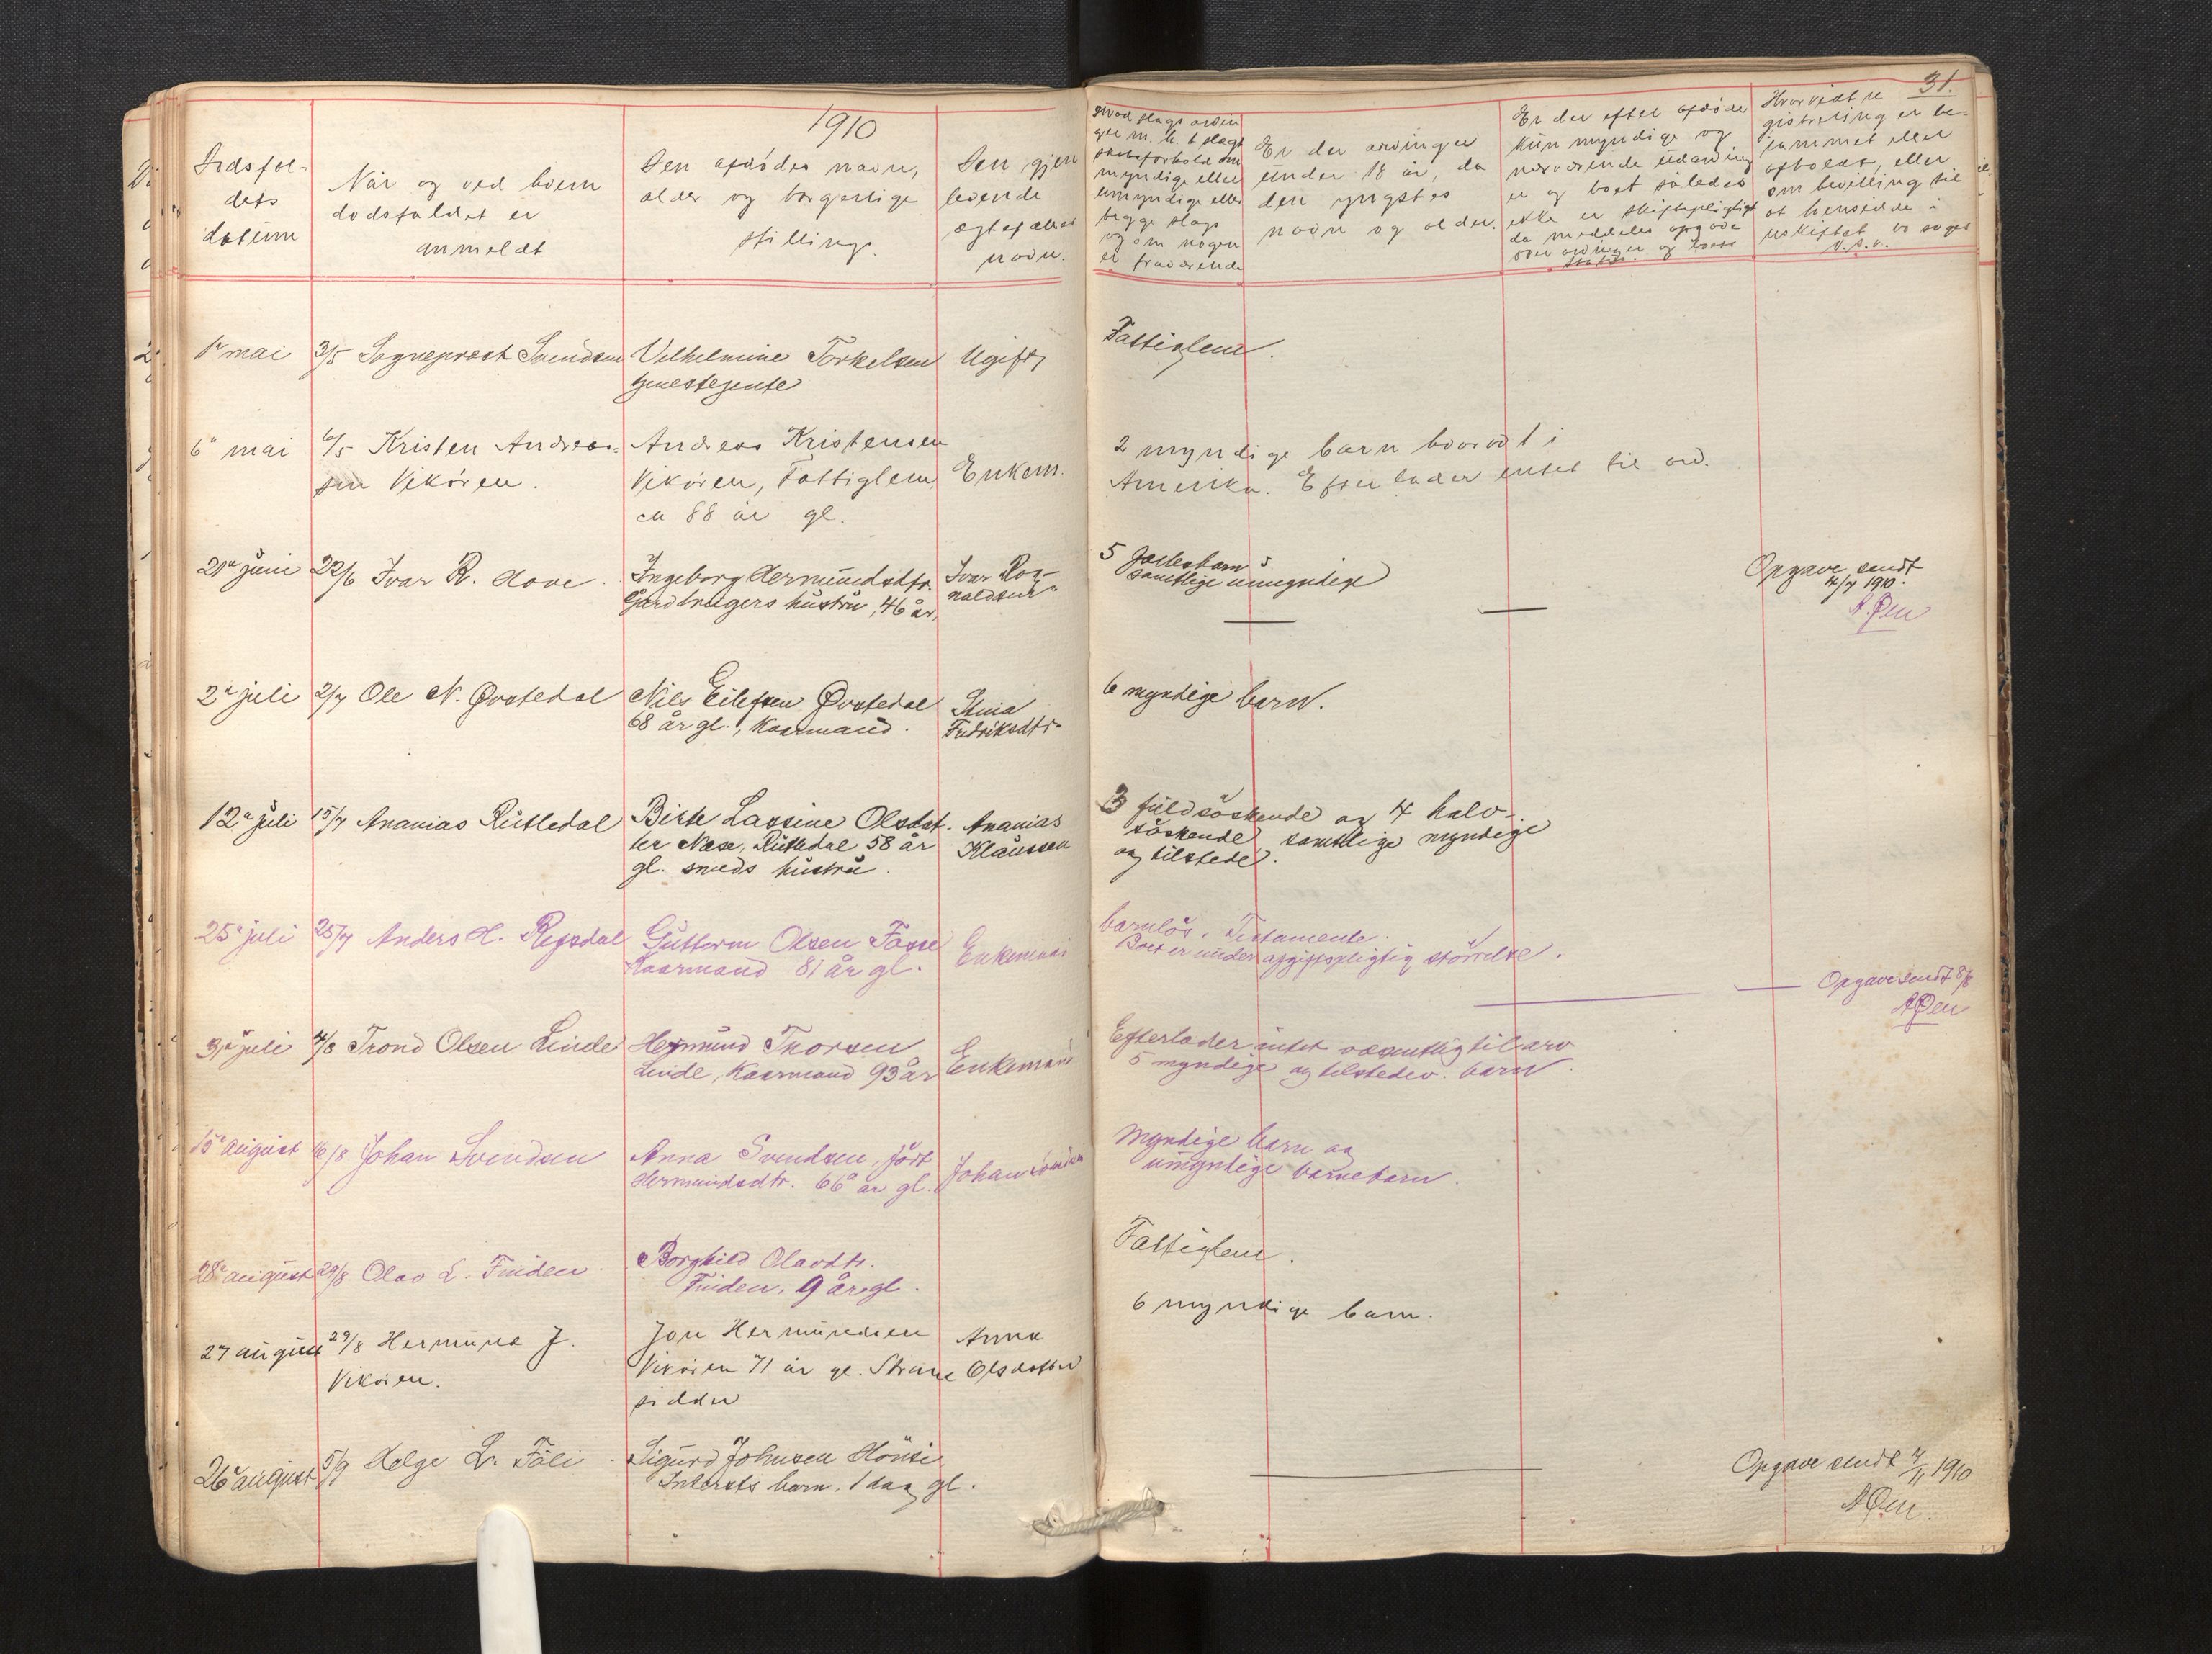 1910
31.
Dødsfal-
dets
datum
Når og ved hvem
dødsfaldet er
anmeldt
Den afdødes navn,
alder og borgerlige
stilling.
Den gjen
levende
ægtefælles
navn.
Hvad slags arvin
ger m. h. t slægt
skabsforhold om
myndige eller
umyndige eller
begge slags
og om nogen
er fraværende
Er der arvinger
under 18 år, da
den yngstes
navn og alder.
Er der efter afdøde
kun myndige og
nærværende udarving
er og boet således
ikke er skiftepligtigt
da meddeles opgave
over arvinger og boets
Hvorvidt re
gistrering er be-
rammet eller
afholdt, eller
om bevilling til
at hensidde i
uskiftet bo søges
o. s. v.
1ste mai
3/5 Sogneprest Svendsen
Vilhelmine Torkelsen
tjenestejente
Ugift
Fattiglem.
6te mai
6/5 Kristen Andreas-
sen Vikören.
Andreas Kristensen
Vikören, Fattiglem,
ca 88 år gl.
Enkem.
2 myndige barn hvoravl i
Amerika. Efterlader intet til arv.
21de juni
22/6 Ivar R. Hove.
Ingeborg Hermundsdtr.
Gardbrugers hustru, 46 år.
Ivar Rog-
naldsen
5 fællesbarn
samtlige umyndige
Opgave sendt
4/7 1910.
A. Øen
2den juli
2/7 Ole N. Øvstedal
Nils Eilefsen Øvstedal
68 år gl., Kaarmand.
Stina
Fredriksdtr
6 myndige barn.
12te juli
15/7 Ananias Rutledal
Birte Lassine Olsdat-
ter Næse, Rutledal 58 år
gl. smeds hustru.
Ananias
Klaussen
3 fuldsöskende og 4 halv-
söskende, samtlige myndige
og tilstede.
25de juli
25/7 Anders H.
Guttorm Olsen Fosse
Kaarmand 81 år gl.
Enkemand
barnlös. Testamente.
Boet er under afgiftspligtig störrelse.
Opgave sendt 8/8
AØen
31te juli
7/8 Trond Olsen Linde
Hermund Thorsen
Linde, Kaarmand 93 år
Enkemand
Efterlader intet væsentlig til arv
5 myndige og tilstedev. barn.
15de august
16/8 Johan Svendsen
Anna Svendsen, född
Hermundsdtr. 66 år gl.
Johan Svendsen
Myndige barn og
umyndige barnebarn.
28de august
29/8 Olav L. Finden
Borghild Olavdtr.
Finden, 9 år gl.
Fattiglem.
27 august
29/8 Hermund J.
Vikören.
Jon Hermundsen
Vikören 71 år gl. Strand
sidder
Anna
Olsdatter
6 myndige barn.
26de august
5/9 Helge L. Föli
Sigurd Johnsen Hönsi
Indersts barn. 1 dag gl.
Opgave sendt 7/11 1910
AØen.